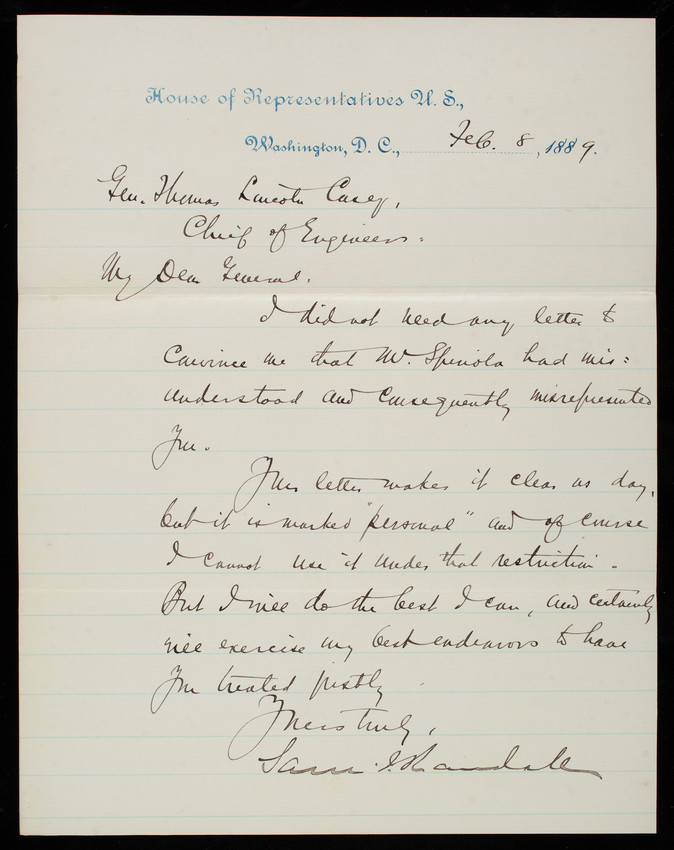 House of Representatives U. S.,
Washington, D. C., Feb. 8, 1889.
Gen. Thomas Lincoln Casey,
Chief of Engineers.
My Dear General.
I did not need any letter to
convince me that Mr. Spinola had mis=
understood and consequently misrepresented
you.
Your letter makes it clear as day,
but it is marked "personal" and of course
I cannot use it under that restriction.
But I will do the best I can, and certainly
will exercise my best endeavors to have
you treated justly.
Yours truly,
Sam. J. Randall